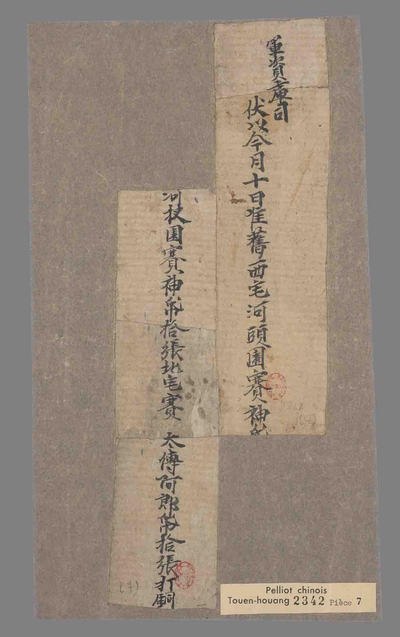 軍資庫司
伏以今月十日准舊西宅河頭園賽神帋
河杖園賽神帋拾張地宅賽 太傅阿郎帋拾張打銅
(7)
Pelliot chinois
Touen-houang 2342 Pièce 7